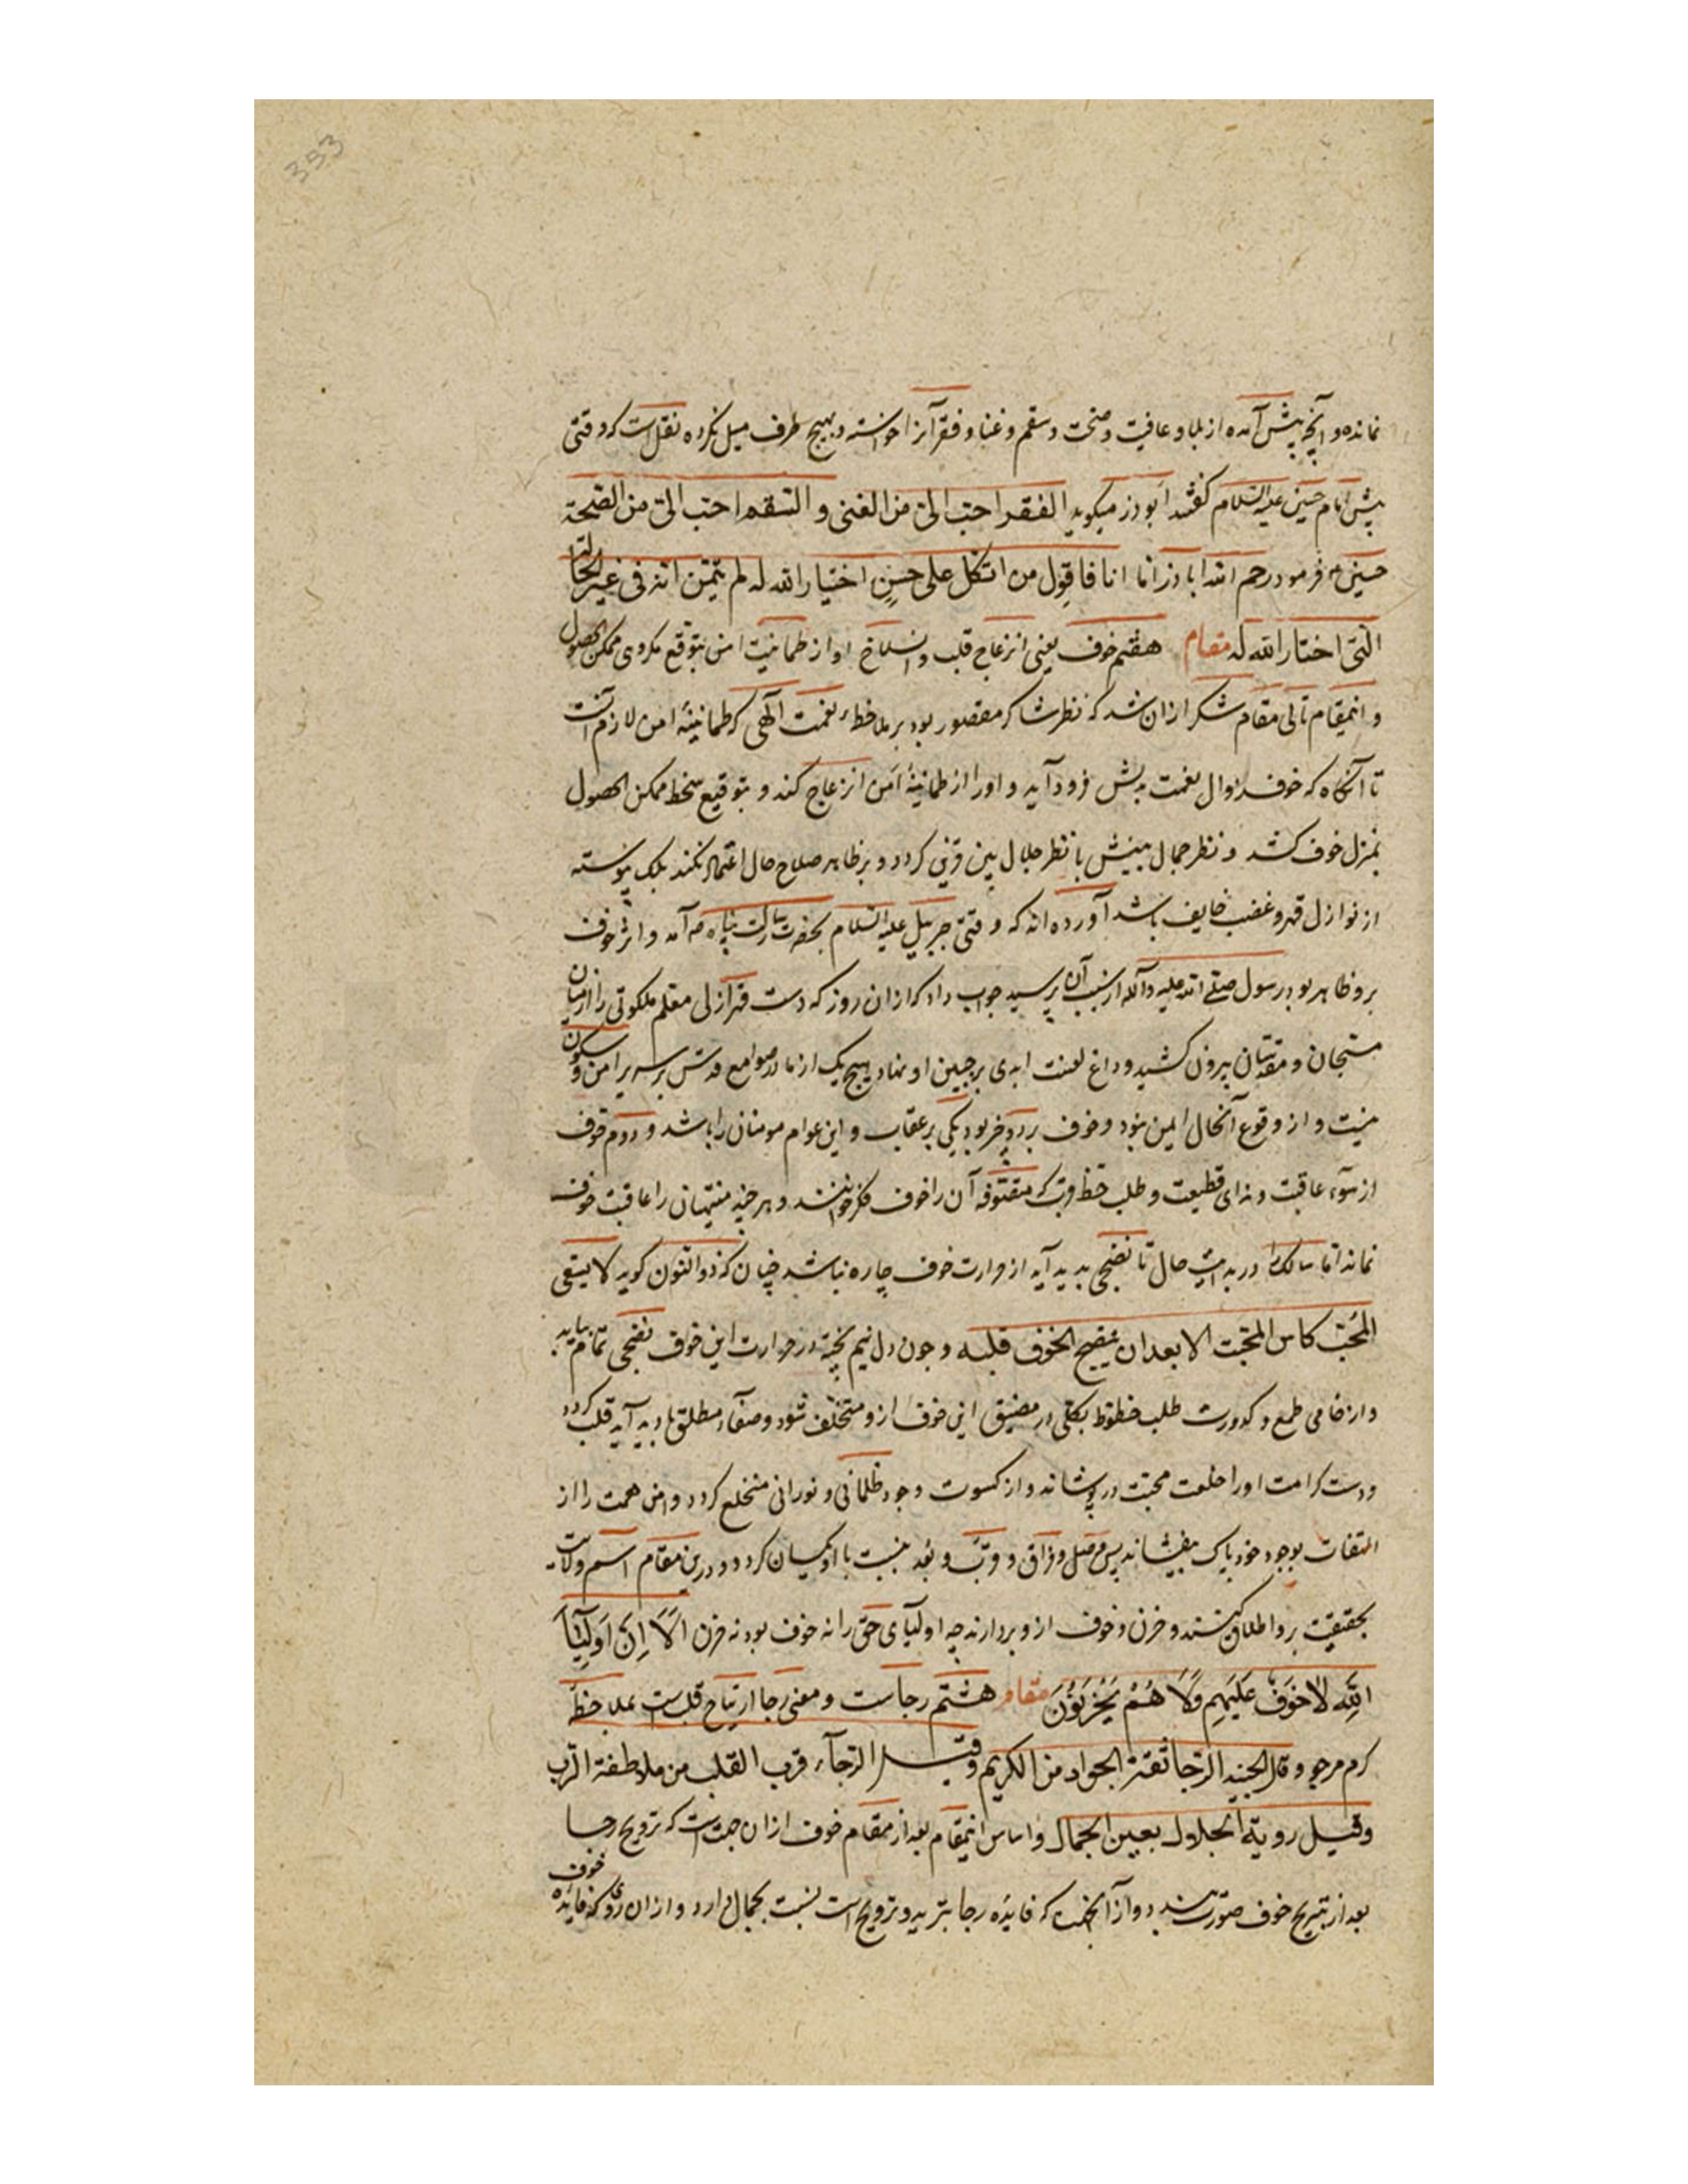 353
نمانده و آنچه پیش آمده از بلا و عافیت و صحت و سقم و غنا و فقر آنرا خواسته و بهیچ طرف میل نکرده نقل است که وقتی
پیش امام حسین علیه السلام گفتند ابوذر میکوید الفقر احب الی من الغنی و السقم احب الی من الصحة
حسین فرمود رحم الله اباذر اما انا فاقول من اتکل علی حسن اختیار الله له لم یتمن انه فی غیر الحالة
التی اختار الله له مقام هفتم خوف یعنی انزعاج قلب و انسلاخ او از طمانیت امن بتوقع مکروهی ممکن الحصول
و اینمقام تالی مقام شکر ازان شد که نظر شاکر مقصور بود بر ملاحظه نعمت الهی که طمانینهٔ امن لازم آنست
تا آنگاه که خوف زوال نعمت بدلش فرود آید و او را از طمانینهٔ امن انزعاج کند و بتوقیع سخط ممکن الحصول
بمنزل خوف کشد و نظر جمال بینش با نظر جلال بین قرین کردد و بر ظاهر صلاح حال اعتماد نکند بلک پیوسته
از نوازل قهر و غضب خایف باشد آورده اند که وقتی جبرییل علیه السلام بحضرت رسالت پناه آمد و اثر خوف
برو ظاهر بود رسول صلی الله علیه و آله از سبب آن پرسید جواب داد که ازان روز که دست قهر ازلی معلم ملکوتی را از میان
مسبحان و مقدسان بیرون کشید و داغ لعنت ابدی بر جبین او نهاد هیچ یک از ما در صوامع قدس بر سریر امن و سکون
نیست و از وقوع آنحال ایمن نبود و خوف بر دو ضرب بود یکی بر عقاب و این عوام مومنان را باشد و دوم خوف
از سوء عاقبت و ندای قطیعت و طلب حظ قرب که متصوفه آن را خوف مکر خوانند و هر چند منتهیان را عاقبت خوف
نماند اما سالک را در بدایت حال تا نضجی بدید آید از حرارت خوف چاره نباشد چنان که ذو النون کوید لا یسقی
المحب کاس المحبت الا بعد ان ینضج الخوف قلبه و چون دل نیم پخته در حرارت این خوف نضجی تمام بیابد
و از خامی طمع و کدورت طلب حظوظ بکلی در مضیق این خوف ازو متخلف شود و صفاء مطلق بادید آید قلب کردد
و دست کرامت او را خلعت محبت در پوشاند و از کسوت وجود ظلمانی و نورانی منخلع کردد و دامن همت را از
التفات بوجود خود پاک بیفشاند پس وصل و فراق و قرب و بعد نسبت با او یکسان کردد و درین مقام اسم ولایت
بحقیقت برو اطلاق کنند و حزن و خوف ازو بردارند چه اولیای حق را نه خوف بود نه حزن الا ان اولیاء
الله لا خوف علیهم ولا هم یحزنون مقام هشتم رجاست و معنی رجا ارتیاح قلب است بملاحظهٔ
کرم مرجو و قال الجنید الرجا ثقة الجواد من الکریم و قیل الرجآء قرب القلب من ملاطفة الرب
و قیل رویة الجلال بعین الجمال و اساس اینمقام بعد از مقام خوف ازان جهت است که ترویح رجا
بعد از تبریح خوف صورت بندد و از آنجهت که فایده رجا تبرید و ترویح است نسبت بجمال دارد و ازان روی که فایدهٔ خوف